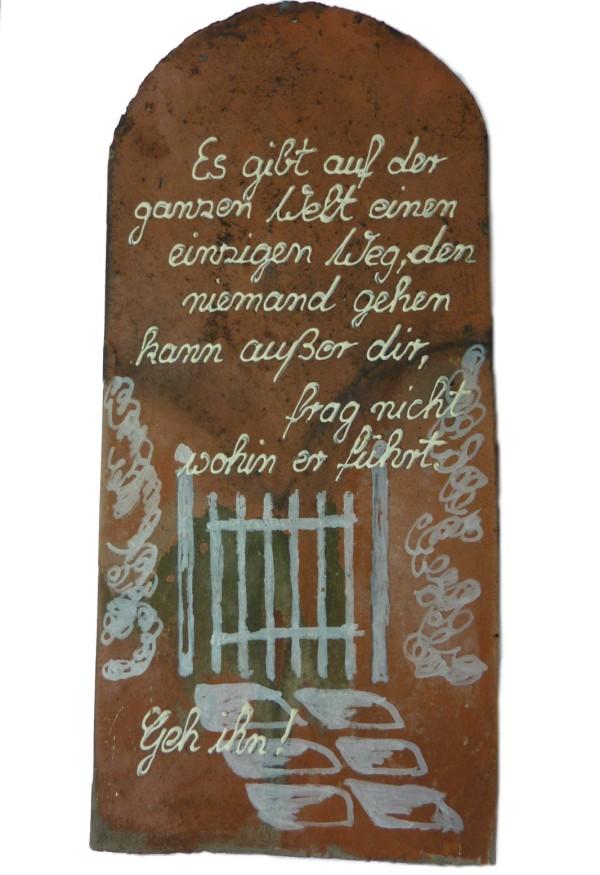 Es gibt auf der
ganzen Welt einen
einzigen Weg, den
niemand gehen
kann außer dir,
frag nicht
wohin er führt.
Geh ihn!